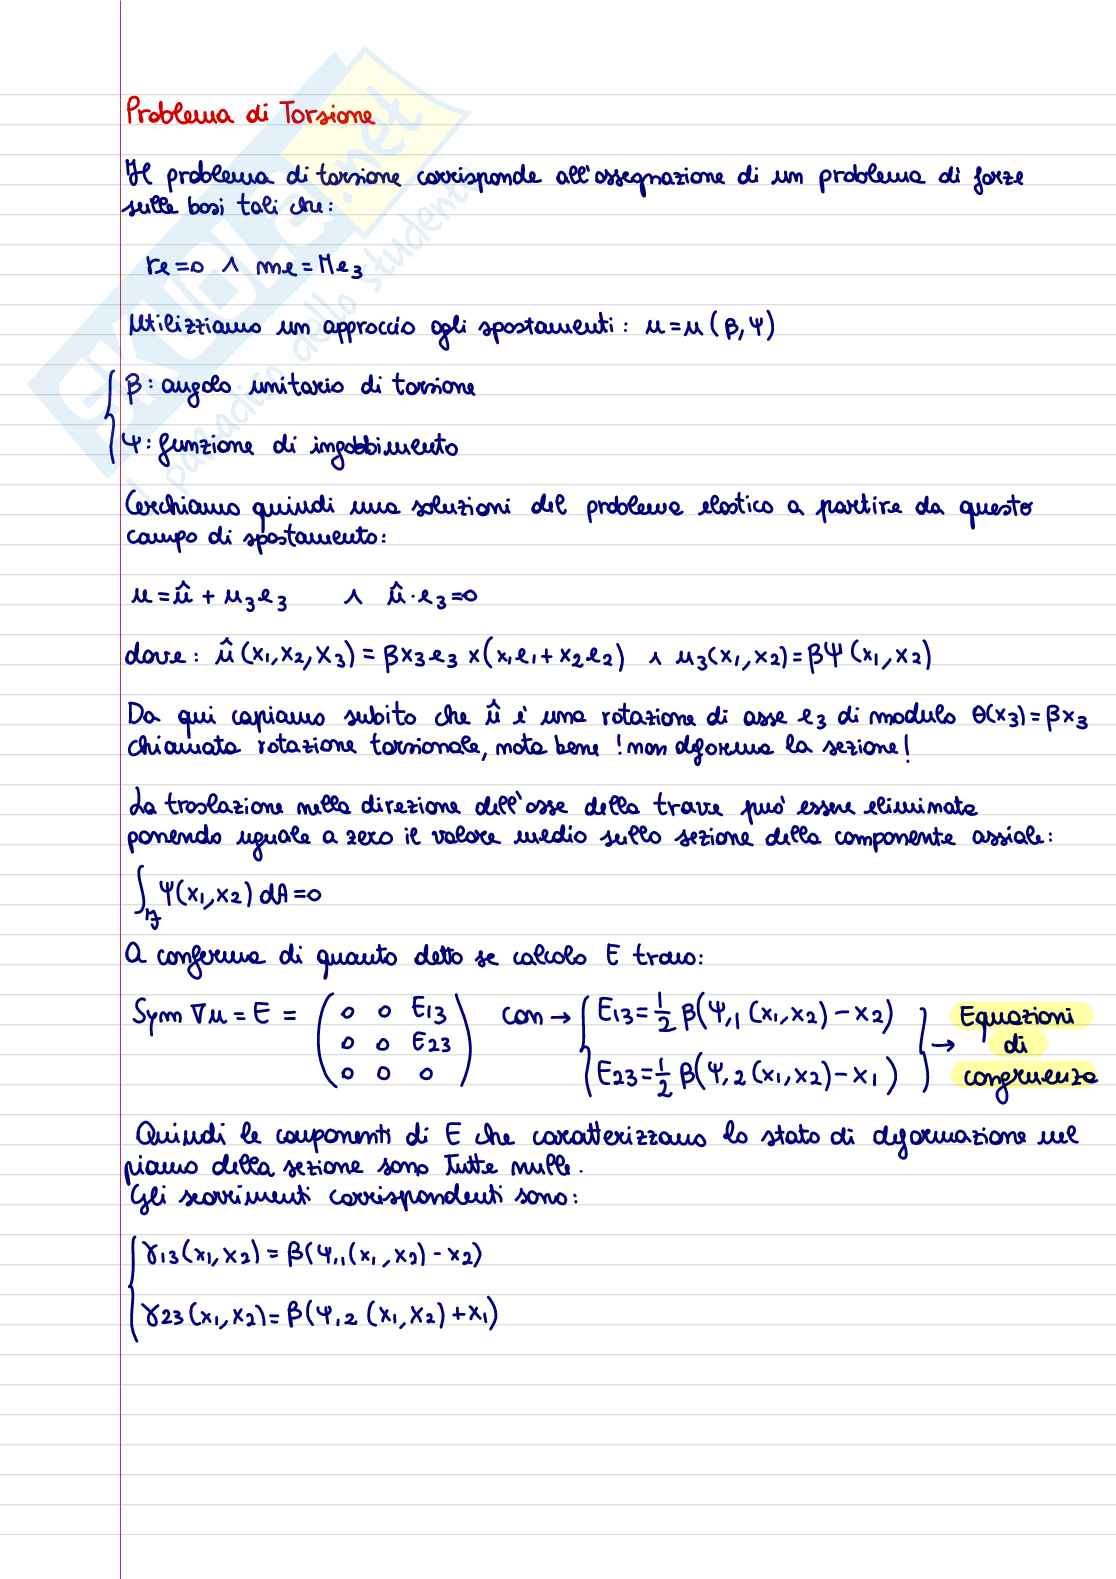 Problema di Torsione
Il problema di torsione corrisponde all'assegnazione di un problema di forze
sulle basi tali che:
re=0 ∧ me=Me3
Utilizziamo un approccio agli spostamenti: u=u(β,Ψ)
β: angolo unitario di torsione
Ψ: funzione di ingobbimento
Cerchiamo quindi una soluzioni del problema elastico a partire da questo
campo di spostamento:
u=û+u3e3 ∧ û·e3=0
dove: û(x1,x2,x3)=βx3e3×(x1e1+x2e2) ∧ u3(x1,x2)=βΨ(x1,x2)
Da qui capiamo subito che û è una rotazione di asse e3 di modulo θ(x3)=βx3
chiamata rotazione torsionale, nota bene !non deforma la sezione!
La traslazione nella direzione dell'asse della trave può essere eliminata
ponendo uguale a zero il valore medio sulla sezione della componente assiale:
∫ Ψ(x1,x2)dA=0
A conferma di quanto detto se calcolo E trovo:
Sym ∇u=E= ( 0 0 E13 con → E13=1/2 β(Ψ,1(x1,x2)-x2) → Equazioni
0 0 E23 di
0 0 0 ) E23=1/2 β(Ψ,2(x1,x2)-x1) congruenza
Quindi le componenti di E che caratterizzano lo stato di deformazione nel
piano della sezione sono tutte nulle.
Gli scorrimenti corrispondenti sono:
γ13(x1,x2)=β(Ψ,1(x1,x2)-x2)
γ23(x1,x2)=β(Ψ,2(x1,x2)+x1)
SKUOLA.net
il paradiso dello studente